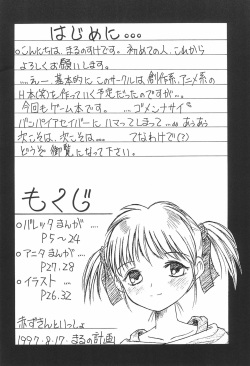 はじめに・・・
○こんにちは、まるのすけです。初めての人、これから
よろしくお願いします。
・・・・えー、基本的にこのサークルは創作系、アニメ系の
H本(笑)を作っていく予定だったのですが・・、
今回もゲーム本です。・・・ゴメンナサイ
バンパイアセイバーにハマってしまって・・・ああう
次こそは、次こそは・・・・ てなわけで(?)
どうぞ御覧になって下さい。
もくじ
○バレッタまんが・・・・
P5〜24
○アニタまんが・・・・
P27.28
○イラスト・・・・
P26.32
赤ずきんといっしょ
1997.8.17. まるの計画